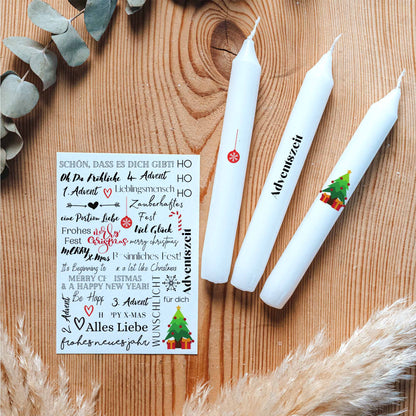 SCHÖN, DASS ES DICH GIBT! HO
Oh Du Fröhliche 4. Advent HO
1. Advent Lieblingsmensch HO
Zauberhaftes
eine Portion Liebe Fest
Frohes Merry Viel Glück
Fest Christmas merry christmas
MERRY
X-Mas Bsinnliches Fest!
It's Beginning to a lot like Christmas
MERRY CHRISTMAS
& A HAPPY NEW YEAR!
Be Happ für dich
2. Advent 3. Advent
H PY X-MAS
Alles Liebe
frohes neues jahr
WUNSCHLICHT
Adventszeit
Adventszeit